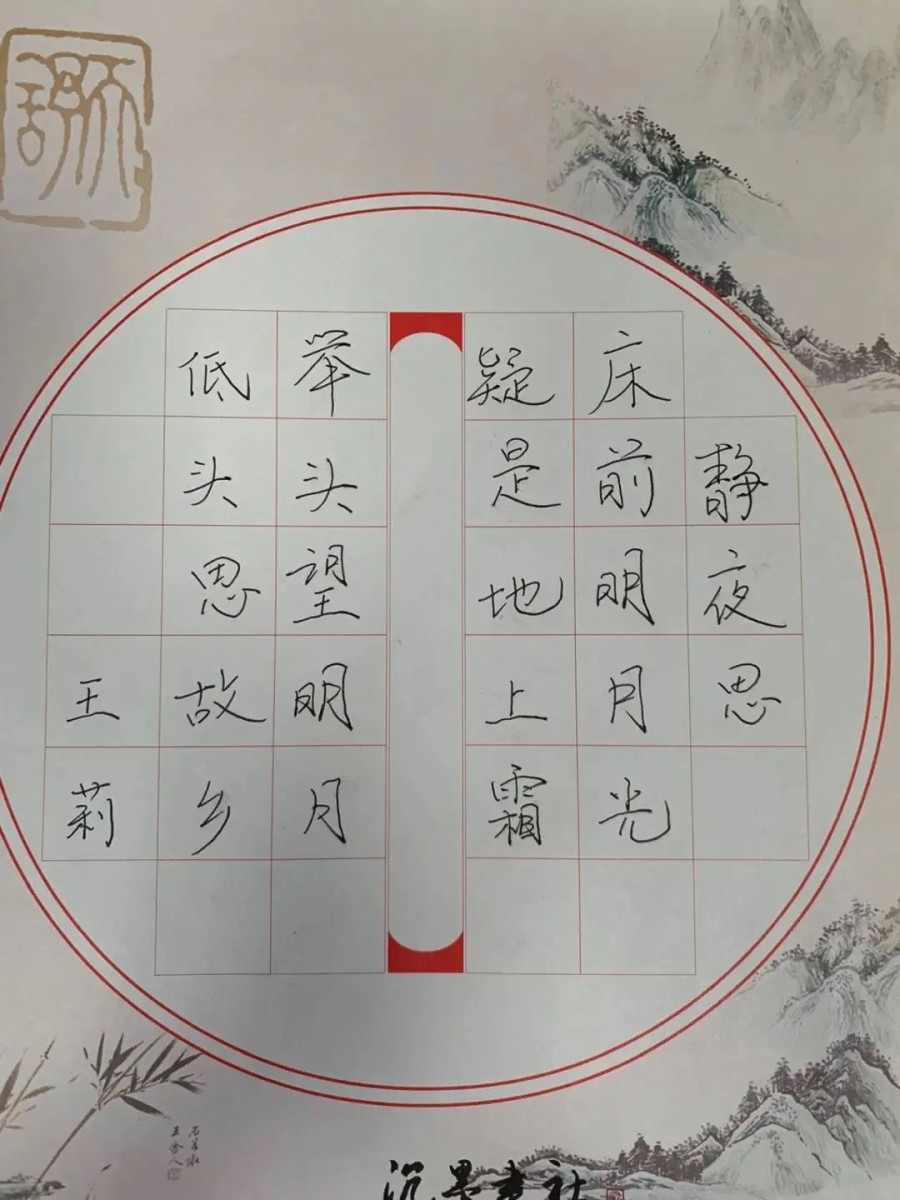 静夜思
床前明月光
疑是地上霜
举头望明月
低头思故乡
王莉
沉墨书社